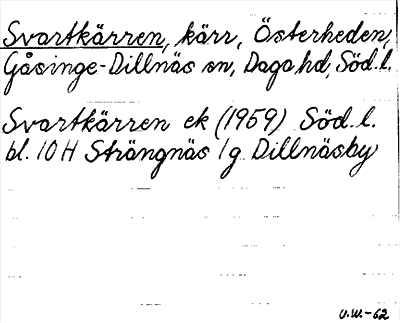 Svartkärren, kärr, Österheden,
Gåsinge-Dillnäs sn, Daga hd, Söd. l.
Svartkärren ek (1959) Söd. l.
bl. 10H Strängnäs 1g Dillnäsby
U.W.-62